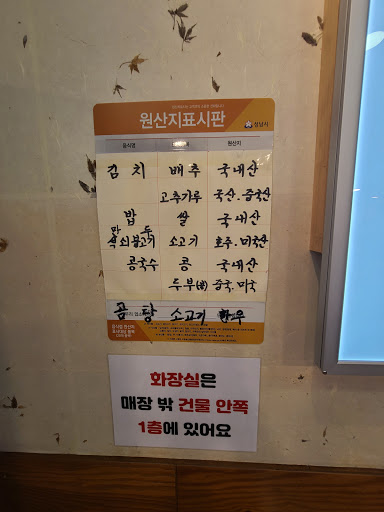 원산지표시판
성남시
음식명 원산지
김치 배추 국내산
고추가루 국산.중국산
밥 쌀 국내산
만두
석쇠불고기 소고기 호주.미국산
콩국수 콩 국내산
두부(콩) 중국.미국
곰탕 소고기 한우
화장실은
매장 밖 건물 안쪽
1층에 있어요